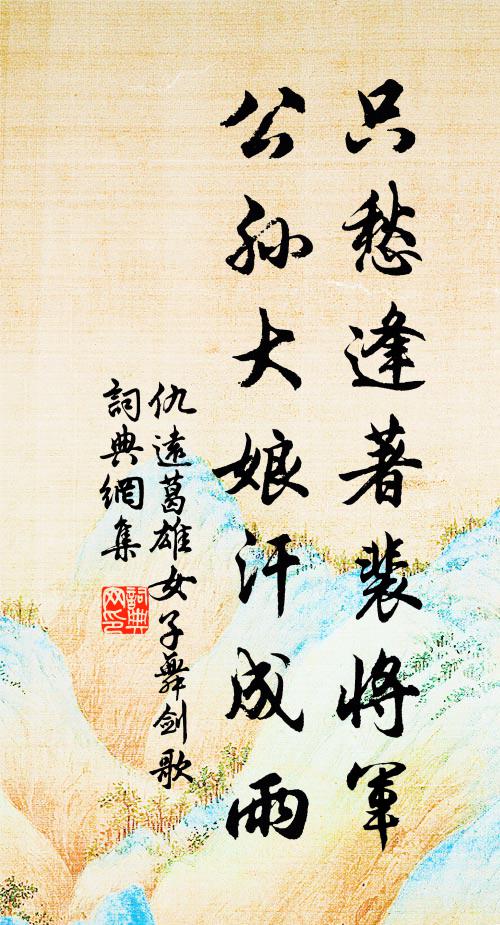 只愁逢著裴將軍
公孫大娘汗成雨
仇遠葛雄女子舞劍歌
詞典網集